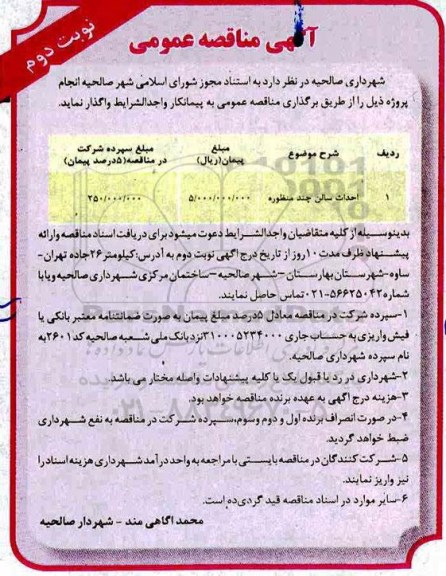 نوبت دوم
آگهی مناقصه عمومی
شهرداری صالحیه در نظر دارد به استناد مجوز شورای اسلامی شهر صالحیه انجام
پروژه ذیل را از طریق برگذاری مناقصه عمومی به پیمانکار واجدالشرایط واگذار نماید.
ردیف شرح موضوع مبلغ پیمان(ریال) مبلغ سپرده شرکت در مناقصه(۵درصد پیمان)
۱ احداث سالن چند منظوره ۵/۰۰۰/۰۰۰/۰۰۰ ۲۵۰/۰۰۰/۰۰۰
بدینوسیله از کلیه متقاضیان واجدالشرایط دعوت میشود برای دریافت اسناد مناقصه وارائه
پیشنهاد ظرف مدت ۱۰روز از تاریخ درج آگهی نوبت دوم به آدرس:کیلومتر۲۶جاده تهران-
ساوه-شهرستان بهارستان-شهر صالحیه-ساختمان مرکزی شهرداری صالحیه ویا با
شماره۵۶۶۲۵۰۴۲-۰۲۱تماس حاصل نمایند.
۱-سپرده شرکت در مناقصه معادل ۵درصد مبلغ پیمان به صورت ضمانتنامه معتبر بانکی یا
فیش واریزی به حساب جاری ۳۱۰۰۰۵۲۳۴۰۰۰نزدبانک ملی شعبه صالحیه کد۲۶۰۱به
نام سپرده شهرداری صالحیه.
۲-شهرداری در رد یا قبول یک یا کلیه پیشنهادات واصله مختار می باشد.
۳-هزینه درج آگهی به عهده برنده مناقصه خواهد بود.
۴-در صورت انصراف برنده اول و دوم وسوم،سپرده شرکت در مناقصه به نفع شهرداری
ضبط خواهد گردید.
۵-شرکت کنندگان در مناقصه بایستی با مراجعه به واحد درآمد شهرداری هزینه اسنادرا
نیز واریز نمایند.
۶-سایر موارد در اسناد مناقصه قید گردیده است.
محمد آگاهی مند - شهردار صالحیه